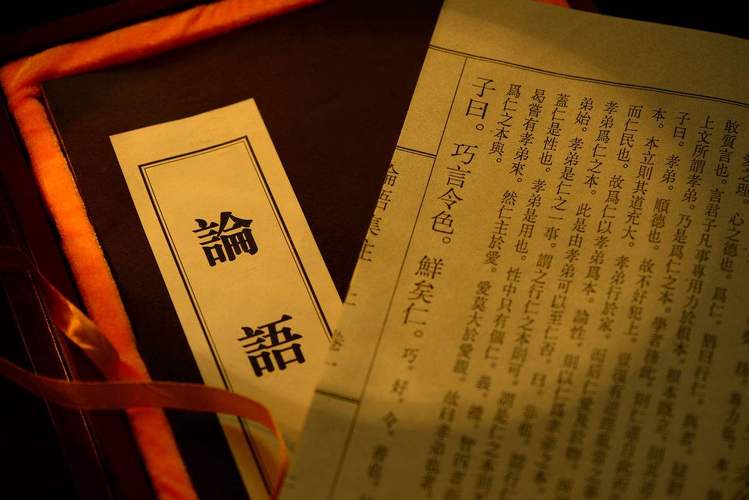 論語
之理。心之德也。爲仁。猶曰行仁。與者。疑辭
敢質言也。言君子凡事專用力於根本。根本既立。則其道
上文所謂孝弟。乃是爲仁之本。學者務此。則仁道自此而
子曰。孝弟。順德也。故不好犯上。豈復有逆理亂常之事
本。本立則其道充大。孝弟行於家。而后仁愛及於物。所
而仁民也。故爲仁以孝弟爲本。論性。則以仁爲孝弟之本。
孝弟爲仁之本。此是由孝弟可以至仁否。曰。非也。謂行仁
弟始。孝弟是仁之一事。謂之行仁之本則可。謂是仁之本則
蓋仁是性也。孝弟是用也。性中只有個仁。義。禮。智四者
曷嘗有孝弟來。然仁主於愛。愛莫大於愛親。故曰孝弟也者。
爲仁之本與。
子曰。巧言令色。鮮矣仁。巧。好。令。善也。
論語集注 卷一